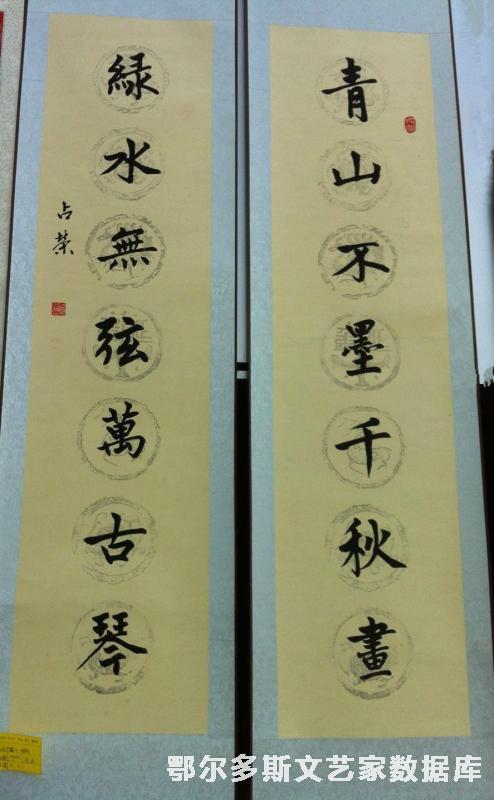 青山不墨千秋畫
綠水無弦萬古琴
占榮
鄂尔多斯文艺家数据库